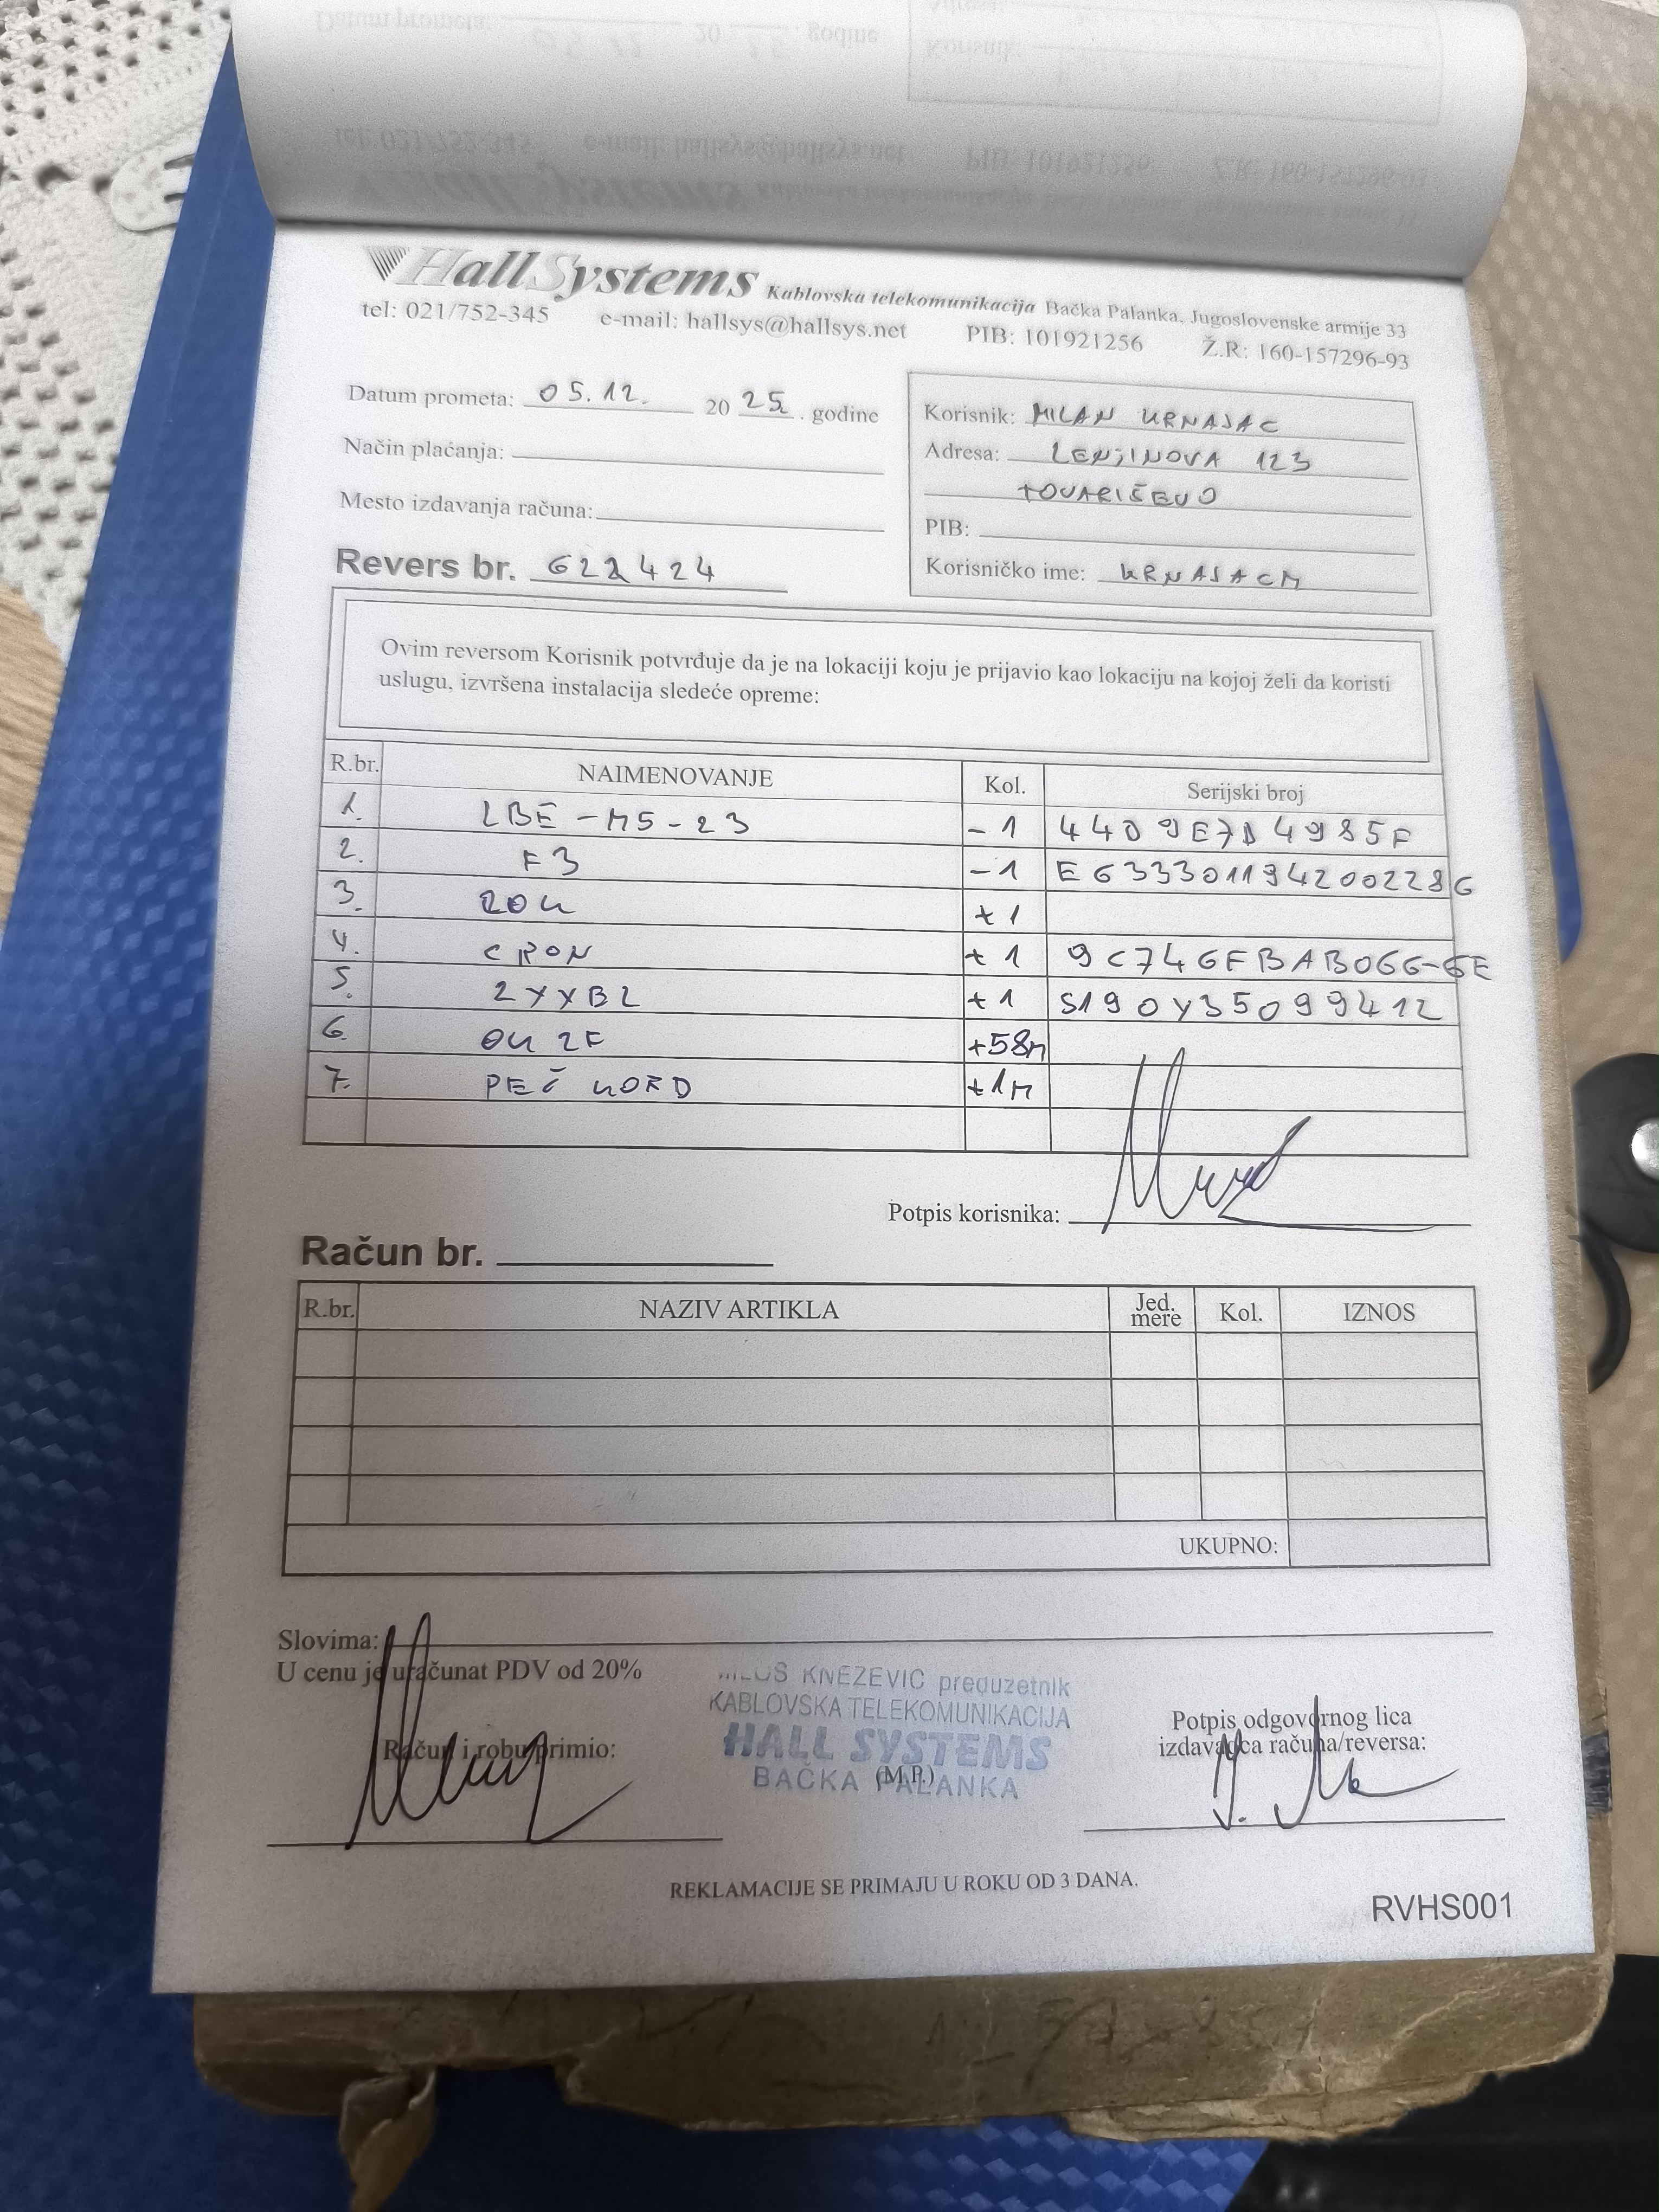 Hall Systems Kablovska telekomunikacija Bačka Palanka, Jugoslovenske armije 33
tel: 021/752-345 e-mail: hallsys@hallsys.net PIB: 101921256 Ž.R: 160-157296-93
Datum prometa: 05.12. 20 25. godine
Način plaćanja:
Mesto izdavanja računa:
Revers br. 622424
Korisnik: MILAN KRNAJAC
Adresa: LENJINOVA 123
TOVARIŠEVO
PIB:
Korisničko ime: KRNAJACM
Ovim reversom Korisnik potvrđuje da je na lokaciji koju je prijavio kao lokaciju na kojoj želi da koristi
uslugu, izvršena instalacija sledeće opreme:
R.br. NAIMENOVANJE Kol. Serijski broj
1. LBE-M5-23 -1 44D9E7D4985F
2. F3 -1 E63330119420022286
3. ZOK +1
4. CPON +1 9C746FBAB066-6E
5. ZYXBZ +1 S190Y35099412
6. OK 2F +58M
7. PEČ KORD +1M
Potpis korisnika:
Račun br.
R.br. NAZIV ARTIKLA Jed. mere Kol. IZNOS
UKUPNO:
Slovima:
U cenu je uračunat PDV od 20%
MILOS KNEZEVIC preduzetnik
KABLOVSKA TELEKOMUNIKACIJA
HALL SYSTEMS
BAČKA PALANKA
Račun i robu primio:
(M.P.)
Potpis odgovornog lica
izdavaoca računa/reversa:
REKLAMACIJE SE PRIMAJU U ROKU OD 3 DANA.
RVHS001